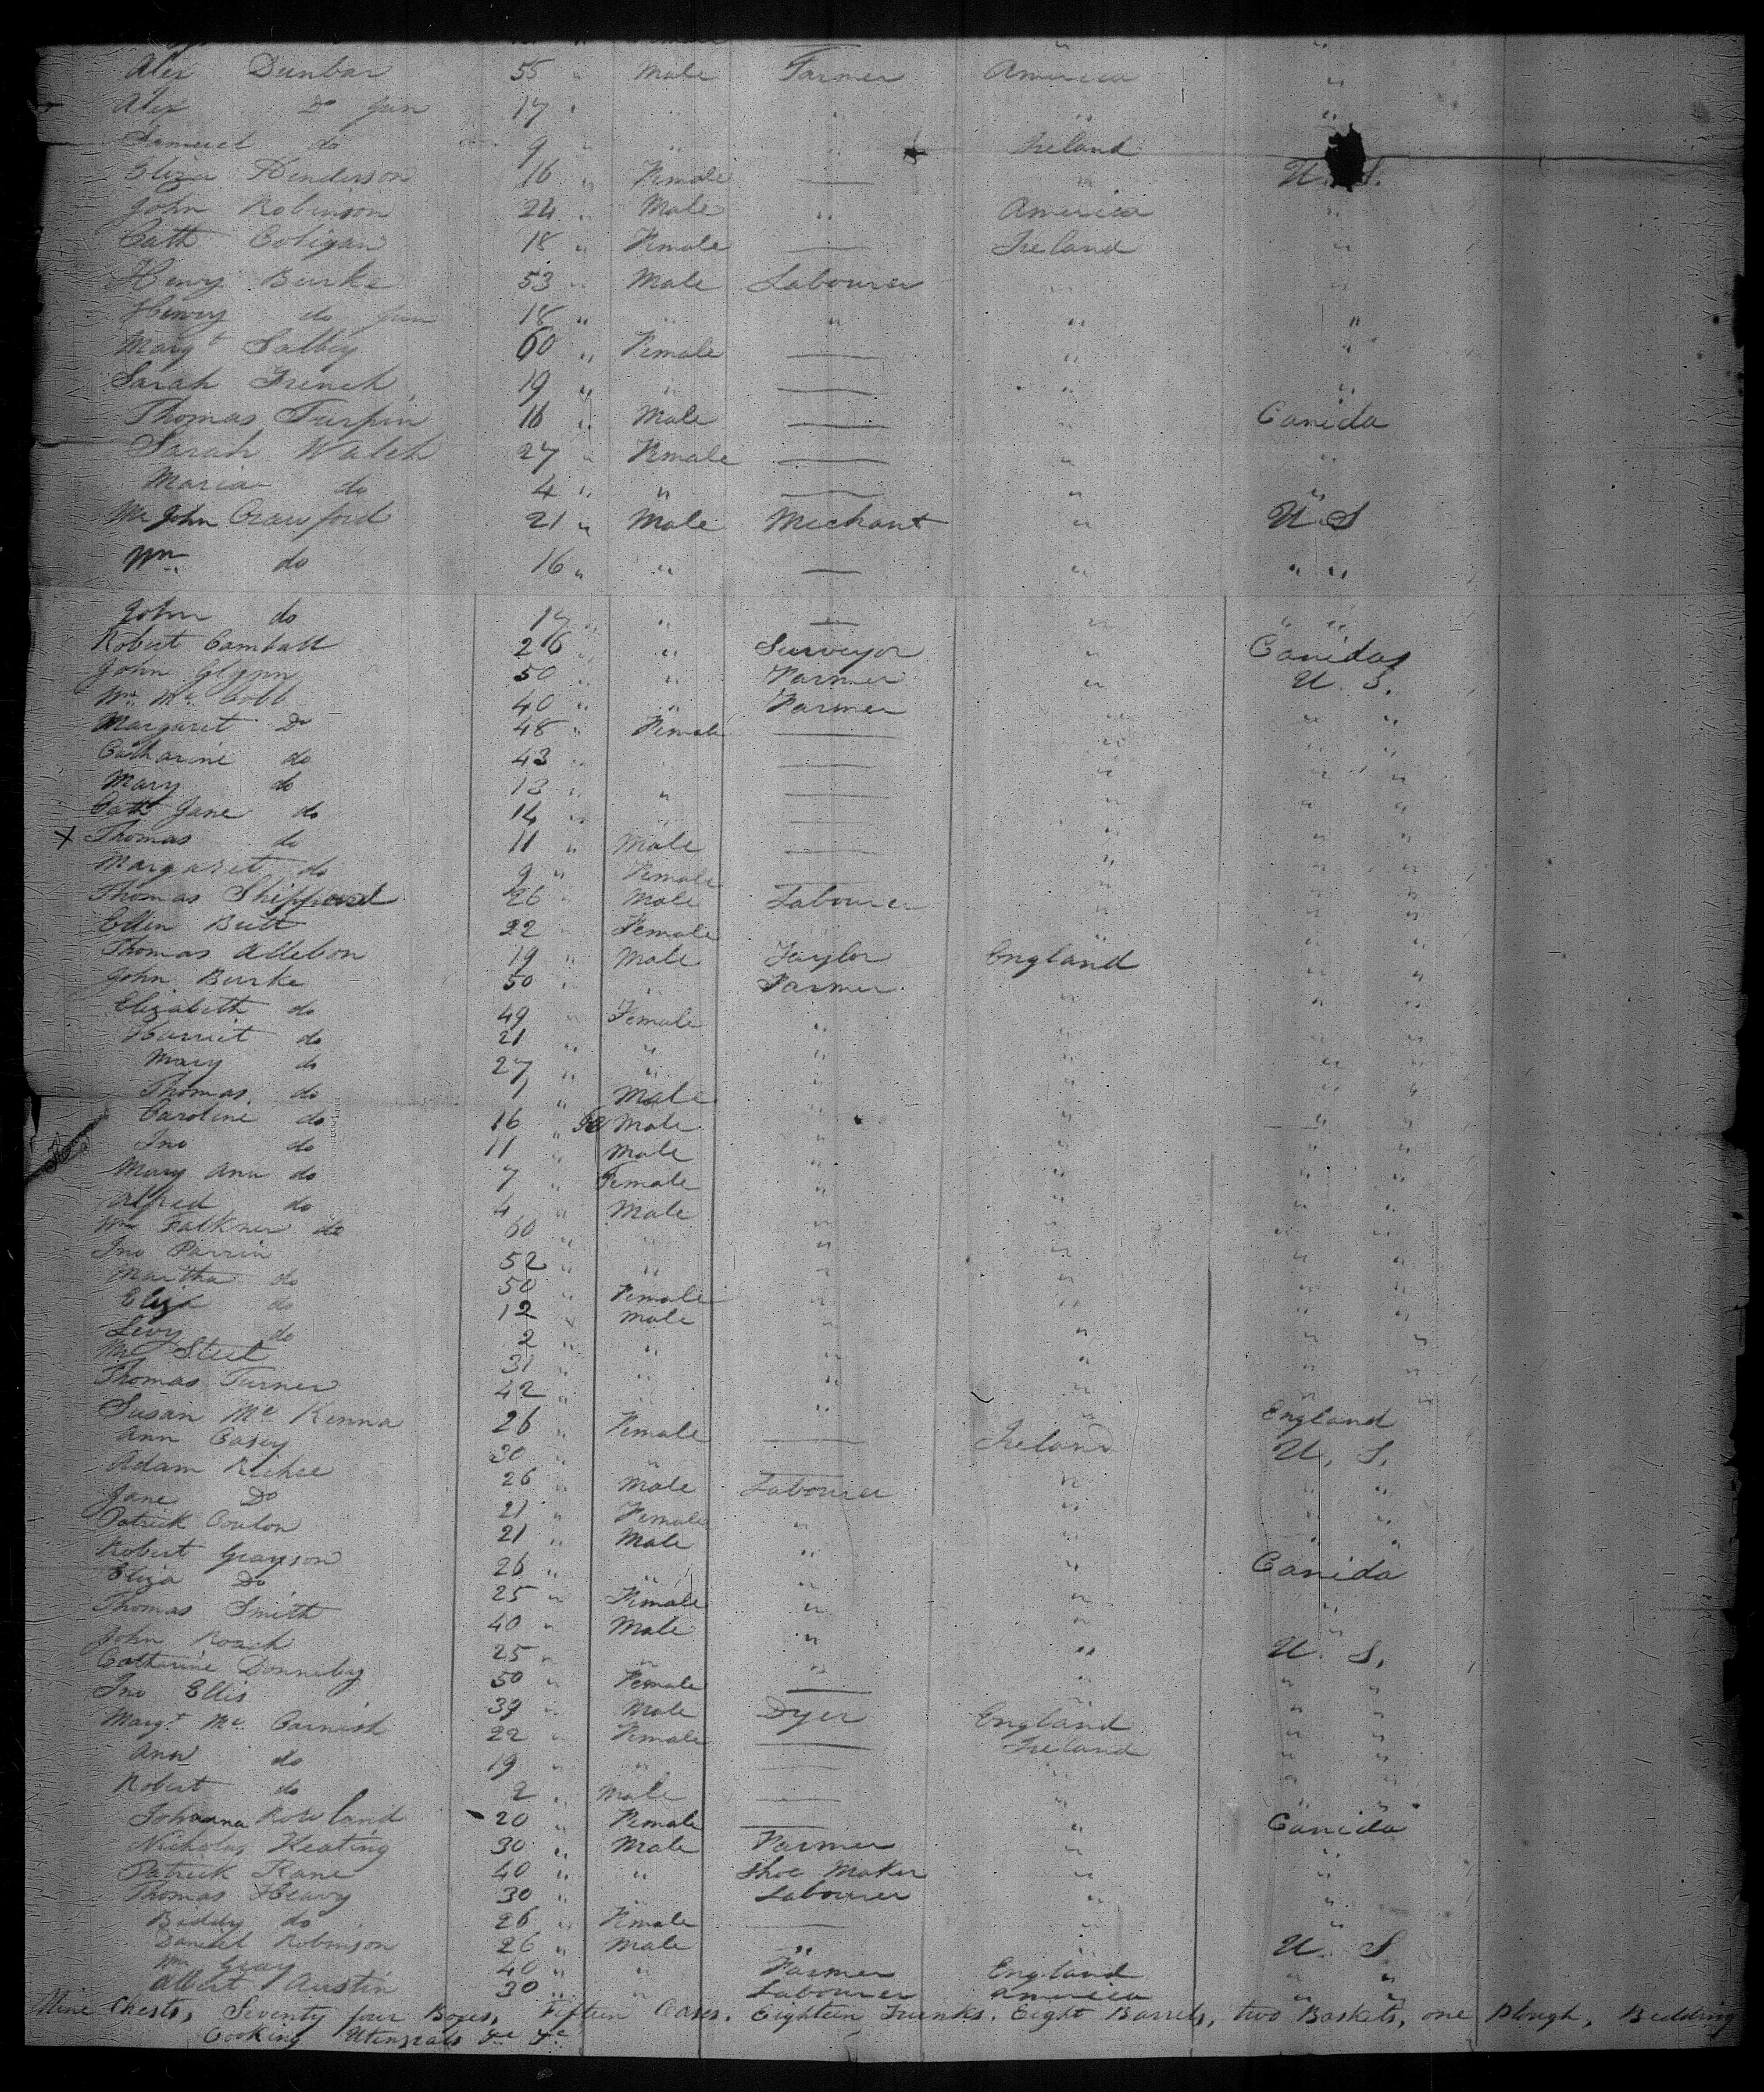 Alex Dunbar 55 " Male Farmer America "
Alex Do Jun 17 " " " " "
Samuel do 9 " " " Ireland "
Eliza Henderson 16 " Female — " U. S.
John Robinson 24 " Male " America "
Cath Coligan 18 " Female — Ireland "
Henry Burke 53 " Male Labourer " "
Henry do Jun 18 " " " " "
Margt Salbey 60 " Female — " "
Sarah French 19 " " — " "
Thomas Turpin 16 " Male — " Canida
Sarah Walch 27 " Female — " "
Maria do 4 " " — " "
Mr John Crawford 21 " Male Mechant " U S
Wm do 16 " " — " " "
John do 17 " " — " " "
Robert Cambatt 26 " " Surveyor " Canida
John Glynn 50 " " Farmer " U. S.
Wm Mc Cobb 40 " " Farmer " " "
Margaret Do 48 " Female — " " "
Catharine do 43 " " — " " "
Mary do 13 " " — " " "
Cath Jane do 14 " " — " " "
X Thomas do 11 " Male — " " "
Margaret do 9 " Female — " " "
Thomas Shippard 26 " Male Labourer " " "
Ellen Butt 22 " Female " " "
Thomas Allebon 19 " Male Taylor England " "
John Burke 50 " " Farmer " " "
Elizabeth do 49 " Female " " " "
Harriet do 21 " " " " " "
Mary do 27 " " " " " "
Thomas do 1 " Male " " " "
Caroline do 16 " Fe Male " " " "
Jno do 11 " Male " " " "
Mary Ann do 7 " Female " " " "
Alfred do 4 " Male " " " "
Wm Falkner do 60 " " " " " "
Jno Parrin 52 " " " " " "
Martha do 50 " Female " " " "
Eliza do 12 " Male " " " "
Levy do 2 " " " " " "
Wm Steet 31 " " " " " "
Thomas Turner 42 " " " " " "
Susan Mc Kenna 26 " Female — Ireland England
Ann Casey 30 " " — " U. S.
Adam Richee 26 " Male Labourer " " "
Jane Do 21 " Female " " " "
Patrick Conlon 21 " Male " " " "
Robert Grayson 26 " " " " Canida
Eliza Do 25 " Female " " "
Thomas Smith 40 " Male " " "
John Roach 25 " " " " U. S.
Catharine Donnelay 50 " Female — " " "
Jno Ellis 39 " Male Dyer England " "
Margt Mc Cornish 22 " Female — Ireland " "
Ann do 19 " " — " " "
Robert do 2 " Male — " " "
Johanna Rowland 20 " Female — " Canida
Nicholas Keating 30 " Male Farmer " "
Patrick Kane 40 " " Shoe Maker " "
Thomas Heavy 30 " " Labourer " "
Biddy do 26 " Female — " "
Daniel Robinson 26 " Male " " U. S
Wm Gray 40 " " Farmer England " "
Albert Austin 30 " " Labourer America " "
Nine Chests, Seventy four Boxes, Fifteen Cases. Eighteen Trunks. Eight Barrels, two Baskets, one plough, Bedding
Cooking Utensials &c &c